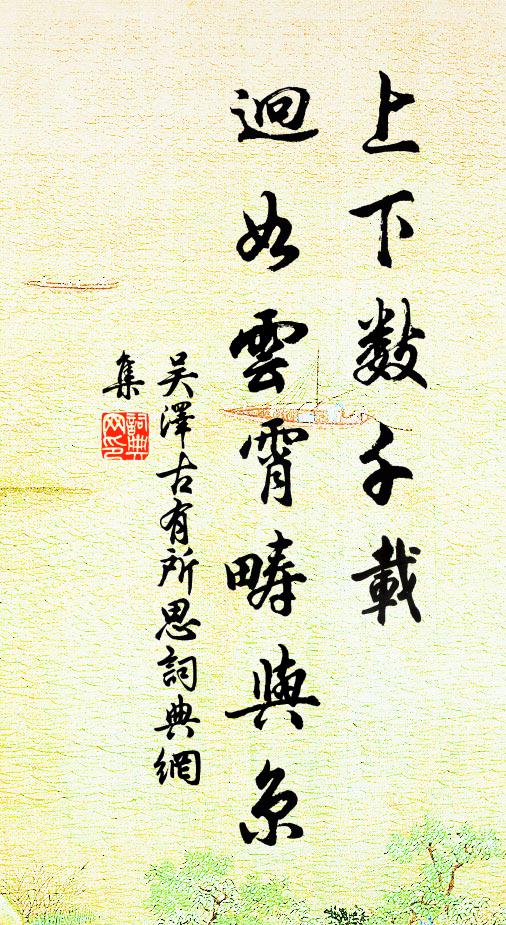 上下数千載
迥如雲霄疇與京
吴澤古有所思詞典網
集
詞典
网印